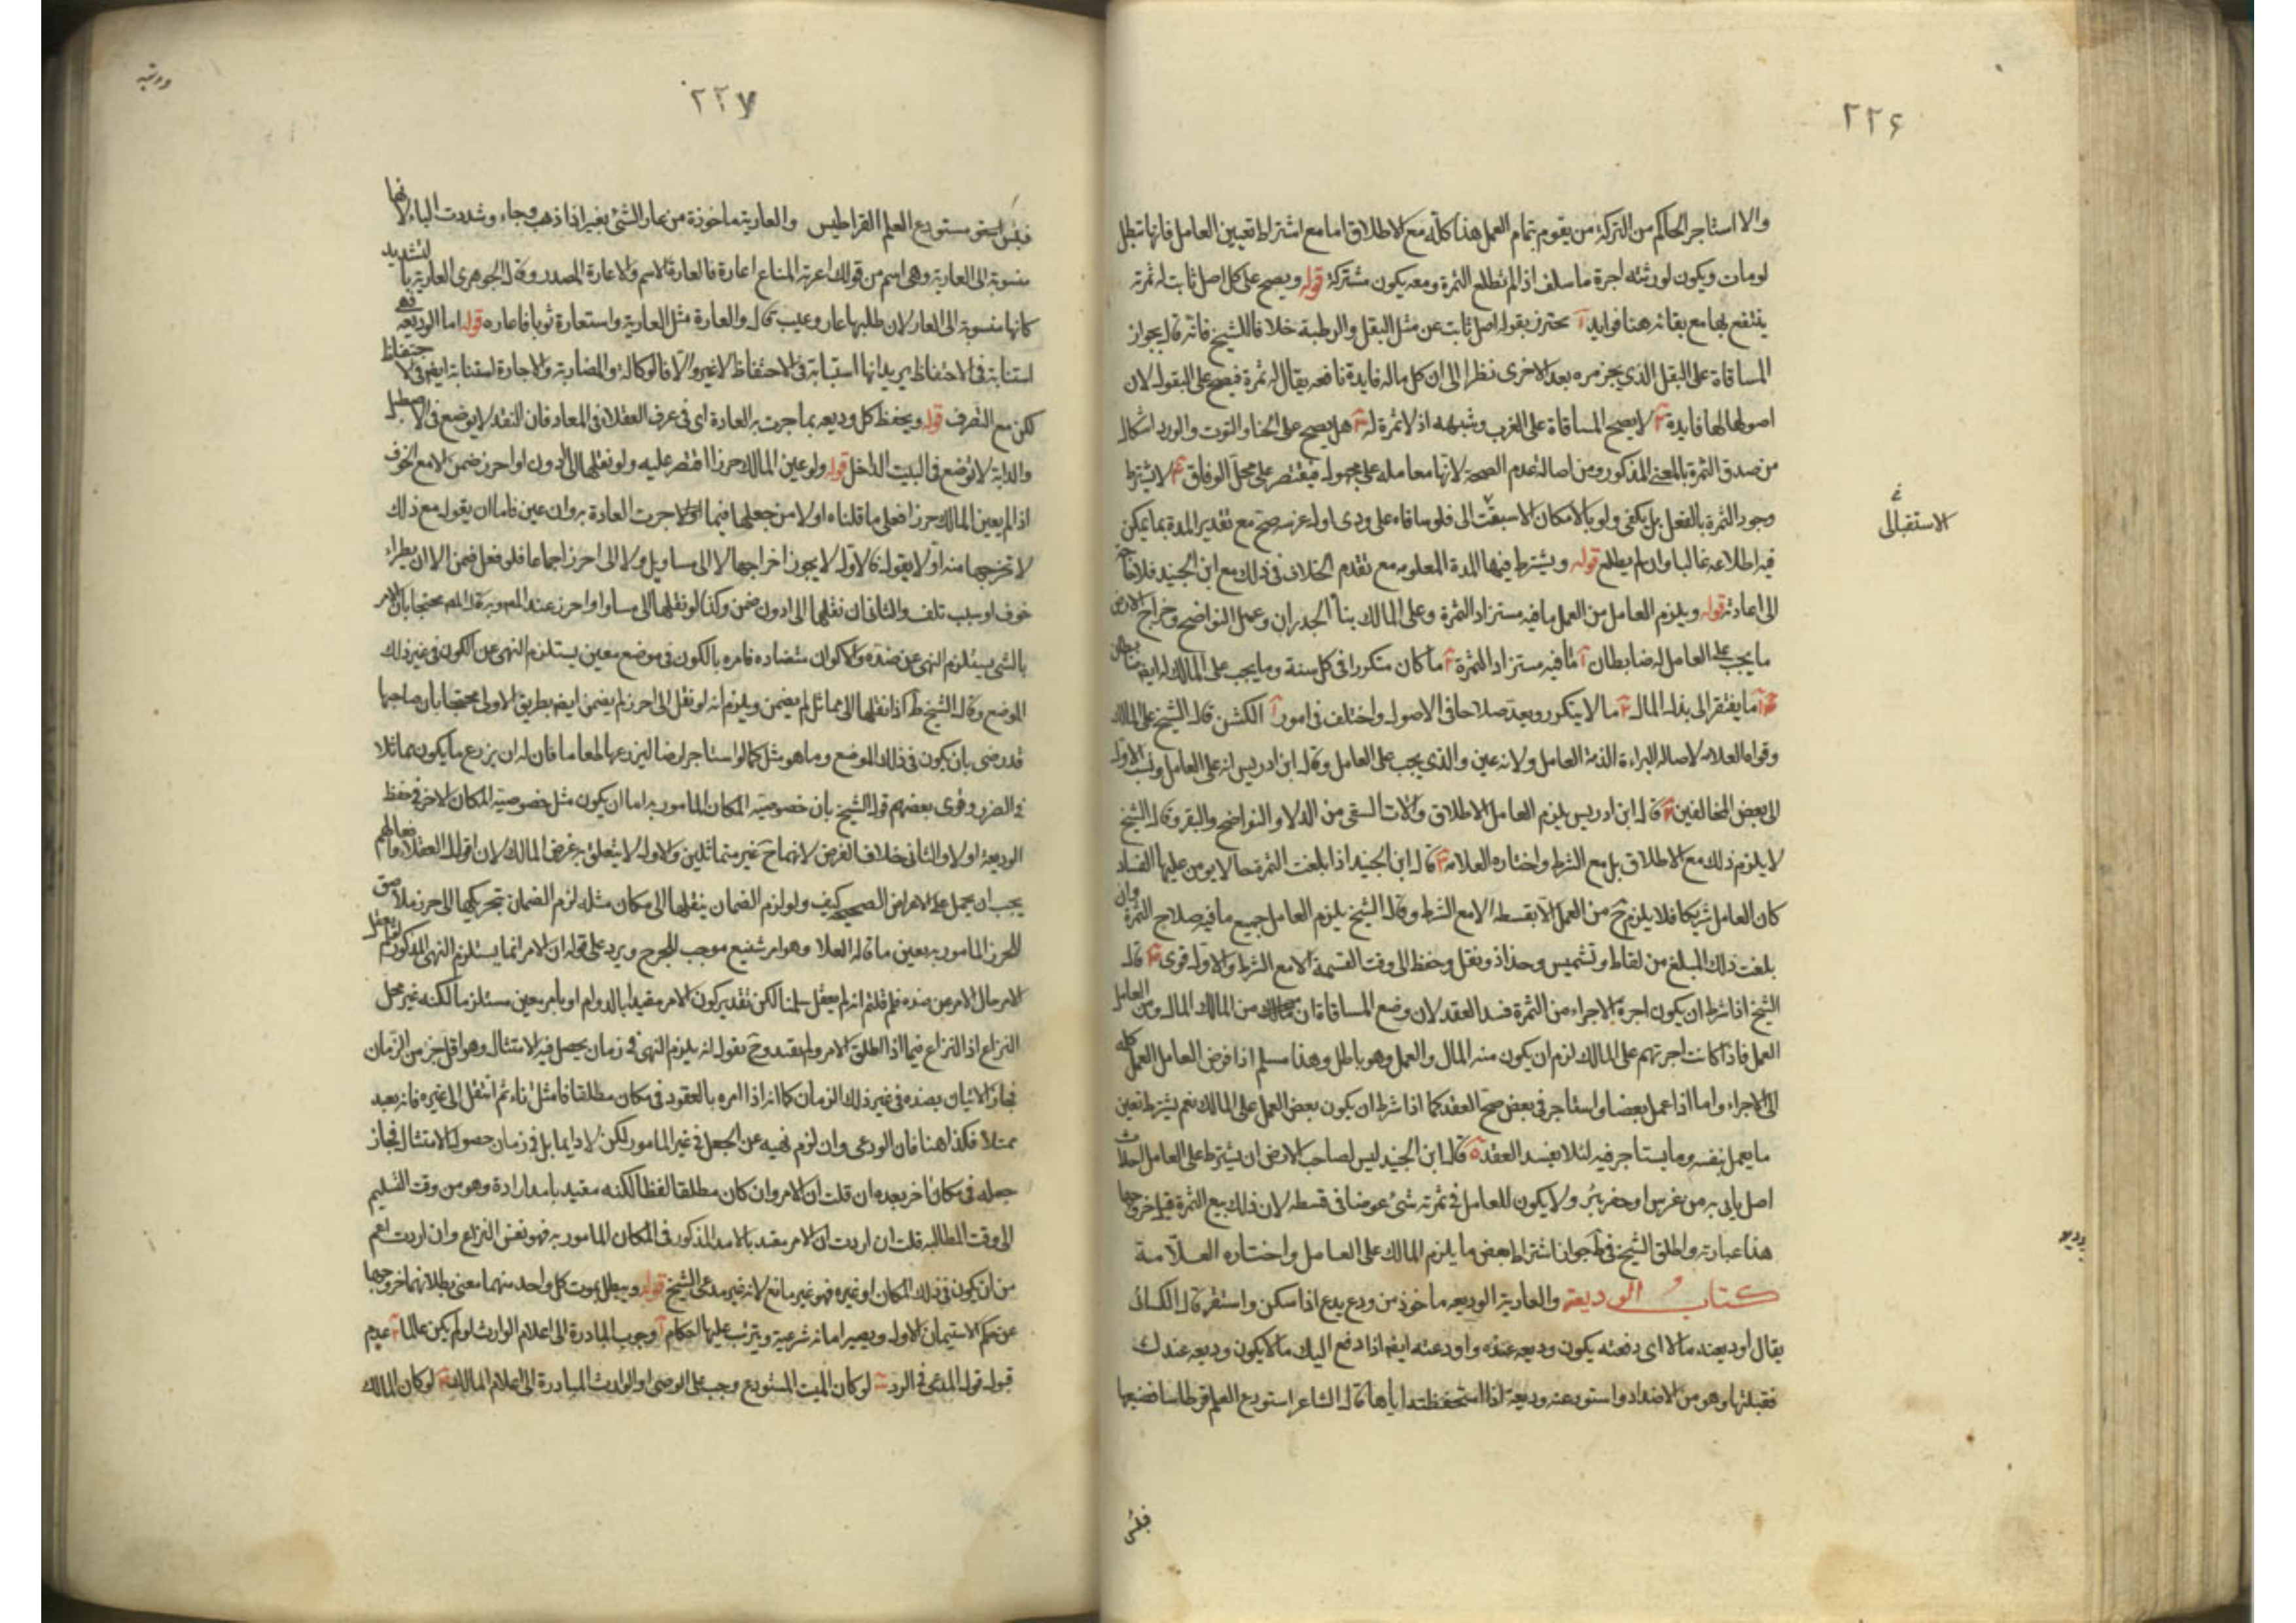 ٢٢۶
والا استاجر الحاكم من التركة من يقوم بتمام العمل هذا كله مع الاطلاق اما مع اشتراط تعيين العامل فانها تبطل
لو مات ويكون لورثته اجرة ما سلف اذا لم تطلع الثمرة ومعه يكون مشتركة قوله ويصح على كل اصل ثابت له ثمرة
ينتفع بها مع بقائه هنا فوايد آ يحترز بقوله اصل ثابت عن مثل البقل والرطبة خلافا للشيخ فانه قال بجواز
المساقاة على البقل الذي يجز مره بعد الاخرى نظرا الى ان كل ماله فايدة نافعه يقال له ثمرة فيصح على البقول لان
اصولها لها فايدة لا يصح المساقاة على الغرب وشبهه اذ لا ثمرة له هل يصح على الحنا والتوت والورد اشكال
من صدق الثمرة بالمعنى المذكور ومن اصالة عدم الصحة لانها معامله على مجهول فيقتصر على محل الوفاق لا يشترط
وجود الثمرة بالفعل بل يكفى ولو بالامكان الاسبقت الى فلو ساقاه على ودى اوله غرسه صح مع تقدير المدة بما يمكن
الاستقبالى
فيه اطلاعه غالبا وان لم يطلع قوله ويشترط فيها المدة المعلومه مع تقدم الخلاف فى ذلك مع ابن الجنيد فلا حاجة
الى اعادته قوله ويلزم العامل من العمل ما فيه مستزاد الثمرة وعلى المالك بنا الجدران وعمل النواضح وخراج الارض
ما يجب على العامل له ضابطان آ ما فيه مستزاد الثمرة ما كان متكررا فى كل سنة وما يجب على المالك له ايضا ضابطان
ما يفتقر الى بذل المال ما لا يتكرر ويعد صلاحا فى الاصول واختلف فى امور آ الكش قال الشيخ على المالك
وقواه العلامه لاصاله البراءة الذمة العامل ولانه عين والذى يجب على العامل وقال ابن ادريس انه على العامل ونسب الاول
الى بعض المخالفين قال ابن ادريس يلزم العامل الاطلاق والات السقى من الدلاء والنواضح والبقر وقال الشيخ
لا يلزم ذلك مع الاطلاق بل مع الشرط واختاره العلامه قال ابن الجنيد اذا بلغت الثمرة حالا يومن عليها الفساد
كان العامل شريكا فلا يلزم ح من العمل الا بقسطه الا مع الشرط وقال الشيخ يلزم العامل جميع ما فيه صلاح الثمرة وان
بلغت ذلك المبلغ من لقاط وتشميس وجذاذ ونقل وحفظ الى وقت القسمة الا مع الشرط والاول قوى قال
الشيخ اذا شرط ان يكون اجرة الاجراء من الثمرة فسد العقد لان وضع المساقاة ان من المالك المال ومن العامل
العمل فاذا كانت اجرتهم على المالك لزم ان يكون منه المال والعمل وهو باطل وهذا مسلم اذا فوض العامل العمل كله
الى الاجراء واما اذا عمل بعضا واستاجر فى بعض صح العقد كما اذا شرط ان يكون بعض العمل على المالك نعم يشترط تعين
ما يعمل بنفسه وما يستاجر فيه لئلا يفسد العقد قال ابن الجنيد ليس لصاحب الارض ان يشترط على العامل احداث
اصل ياتى به من غرس او حفر بئر ولا يكون للعامل فى ثمرته شئ عوضا فى قسطه لان ذلك بيع الثمرة قبل خروجها
هذا عبارته واطلق الشيخ فى ط جواز اشتراط بعض ما يلزم المالك على العامل واختاره العلامة
كتاب الوديعة والعارية الوديعه ماخوذ من ودع يدع اذا سكن واستقر قال الكسائى
يقال اودعته مالا اى دفعته يكون وديعه عنده واودعته ايضا اذا دفع اليك مالا يكون وديعه عندك
فقبلتها وهو من الاضداد واستودعته وديعة اذا استحفظته اياها قال الشاعر استودع العلم قرطاسا فضيعها
فبئس
٢٢٧
فبئس مستودع العلم القراطيس والعارية ماخوذة من عار الشئ يعير اذا ذهب وجاء وشددت الياء لانها
منسوبة الى العارية وهى اسم من قولك اعرته المتاع اعارة فالعارة الاسم والاعارة المصدر وقال الجوهرى العارية بالتشديد
كانها منسوبة الى العار لان طلبها عار وعيب قال والعارة مثل العارية واستعارة ثوبا فاعاره قوله اما الوديعه فهى
استنابة فى الاحتفاظ يريد انها استنابة فى الاحتفاظ لا غير والا فالوكالة والمضاربة والاجارة استنابة ايضا فى الاحتفاظ
لكن مع التصرف قوله ويحفظ كل وديعه بما جرت به العادة اى فى عرف العقلاء فى المعاد فان النقد لا يوضع فى الاصطبل
والدابة لا توضع فى البيت الداخل قوله ولو عين المالك حرزا اقتصر عليه ولو نقلها الى ادون او احرز ضمن الا مع الخوف
اذا لم يعين المالك حرزا فعلى ما قلناه اولا من جعلها فيما جرت العادة به وان عين فاما ان يقول مع ذلك
لا تخرجها منه او لا يقول فالاول لا يجوز اخراجها لا الى مساو بل ولا الى احرز اجماعا فلو فعل ضمن الا ان يطراء
خوف او سبب تلف والثانى ان نقلها الى ادون ضمن وكذا لو نقلها الى مساو او احرز عند المص وبه قال المص محتجا بان الامر
بالشئ يستلزم النهى عن ضده والاكوان متضاده فامره بالكون فى موضع معين يستلزم النهى عن الكون فى غير ذلك
الموضع وقال الشيخ ط اذا نقلها الى مماثل لم يضمن ويلزم انه لو نقل الى احرز لم يضمن ايضا بطريق الاولى محتجا بان صاحبها
قد رضى بان يكون فى ذلك الموضع وما هو مثله كما لو استاجر ارضا ليزرعها طعاما فان له ان يزرع ما يكون مماثلا
فى الضرر وقوى بعضهم قول الشيخ بان خصوصية المكان المامور به اما ان يكون مثل خصوصية المكان الاخر فى حفظ
الوديعة او لا والثانى خلاف الفرض لانهما ح غير متماثلين والاول لا يتعلق به غرض المالك لان اقوال العقلاء وافعالهم
يجب ان يحمل على الاغراض الصحيحة كيف ولو لزم الضمان بنقلها الى مكان مثله لزم الضمان بتحريكها الى حرز ملاصق
للحرز المامور به بعين ما قاله العلا وهو امر شنيع موجب للحرج ويرد على قوله ان الامر انما يستلزم النهى المذكور
الامر حال الامر عن ضده فلم قلتم انه لم يعقل سلمنا لكن تقدير كون الامر مقيدا بالدوام او بامر معين مستلزما لكنه غير محل
النزاع اذ النزاع فيما اذا اطلق الامر ولم يقيد وح نقول انه يلزم النهى فى زمان يحصل فيه الامتثال وهو اقل جزء من الزمان
فجاز الاتيان بضده فى غير ذلك الزمان كما انه اذا امره بالعقود فى مكان مطلقا فامتثل ثم انتقل الى غيره فانه يعد
ممتثلا فكذا هنا فان الودعى وان لزم نهيه عن الجعل فى غير المامور لكن لا دايما بل فى زمان حصول الامتثال فجاز
جعله فى مكان اخر بعده ان قلت ان الامر وان كان مطلقا لفظا لكنه مقيد بامد ارادة وهو من وقت التسليم
الى وقت المطالبه قلت ان اردت ان الامر مقيد بالامد المذكور فى المكان المامور به فهو نفس النزاع وان اردت اعم
من ان يكون فى ذلك المكان او غيره فهو غير مانع لانه غير مدعى الشيخ قوله ويبطل بموت كل واحد منهما معنى بطلانهما خروجها
عن حكم الاستيمان الاول ويصير امانه شرعية ويترتب عليها احكام آ وجوب المبادرة الى اعلام الوارث لو لم يكن عالما عدم
قبول قول المدعى فى الرد لو كان الميت المستودع وجب على الوصى او الوارث المبادرة الى اعلام المالك لو كان المالك